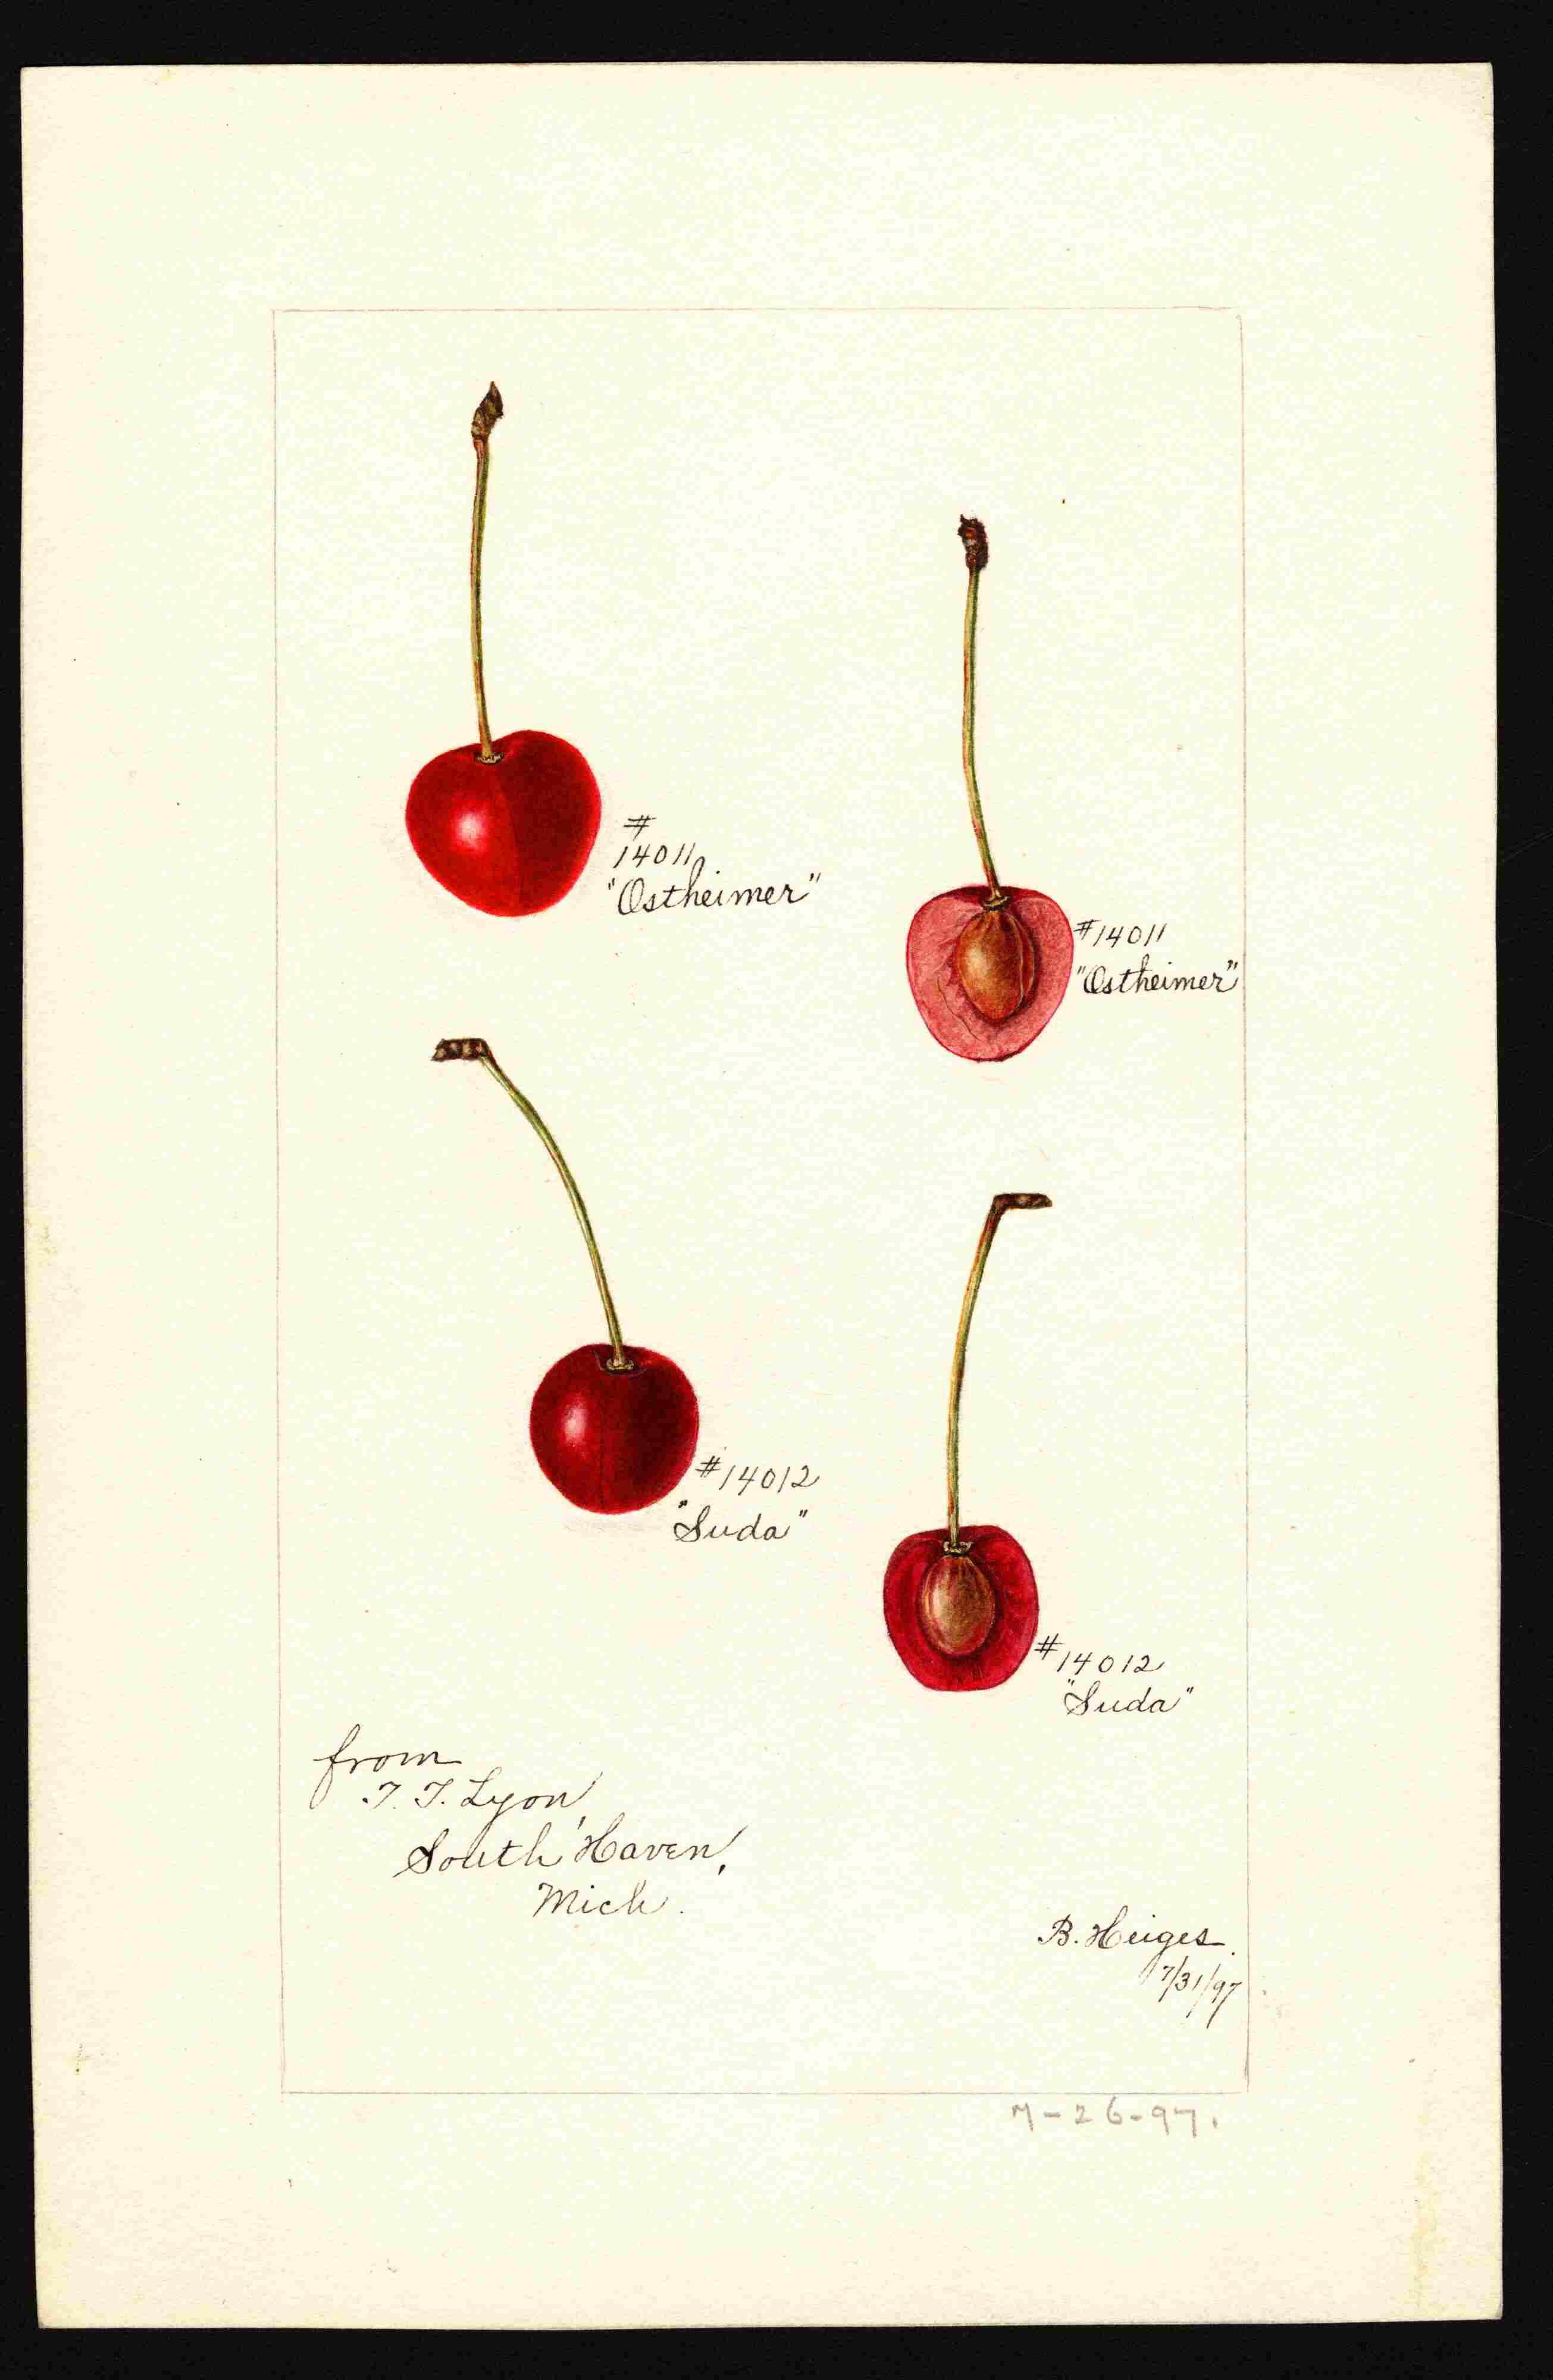 #
14011
"Ostheimer"
#14011
"Ostheimer"
#14012
"Suda"
#14012
"Suda"
from
T. T. Lyon,
South Haven,
Mich.
B. Heiges.
7/31/97
7-26-97.